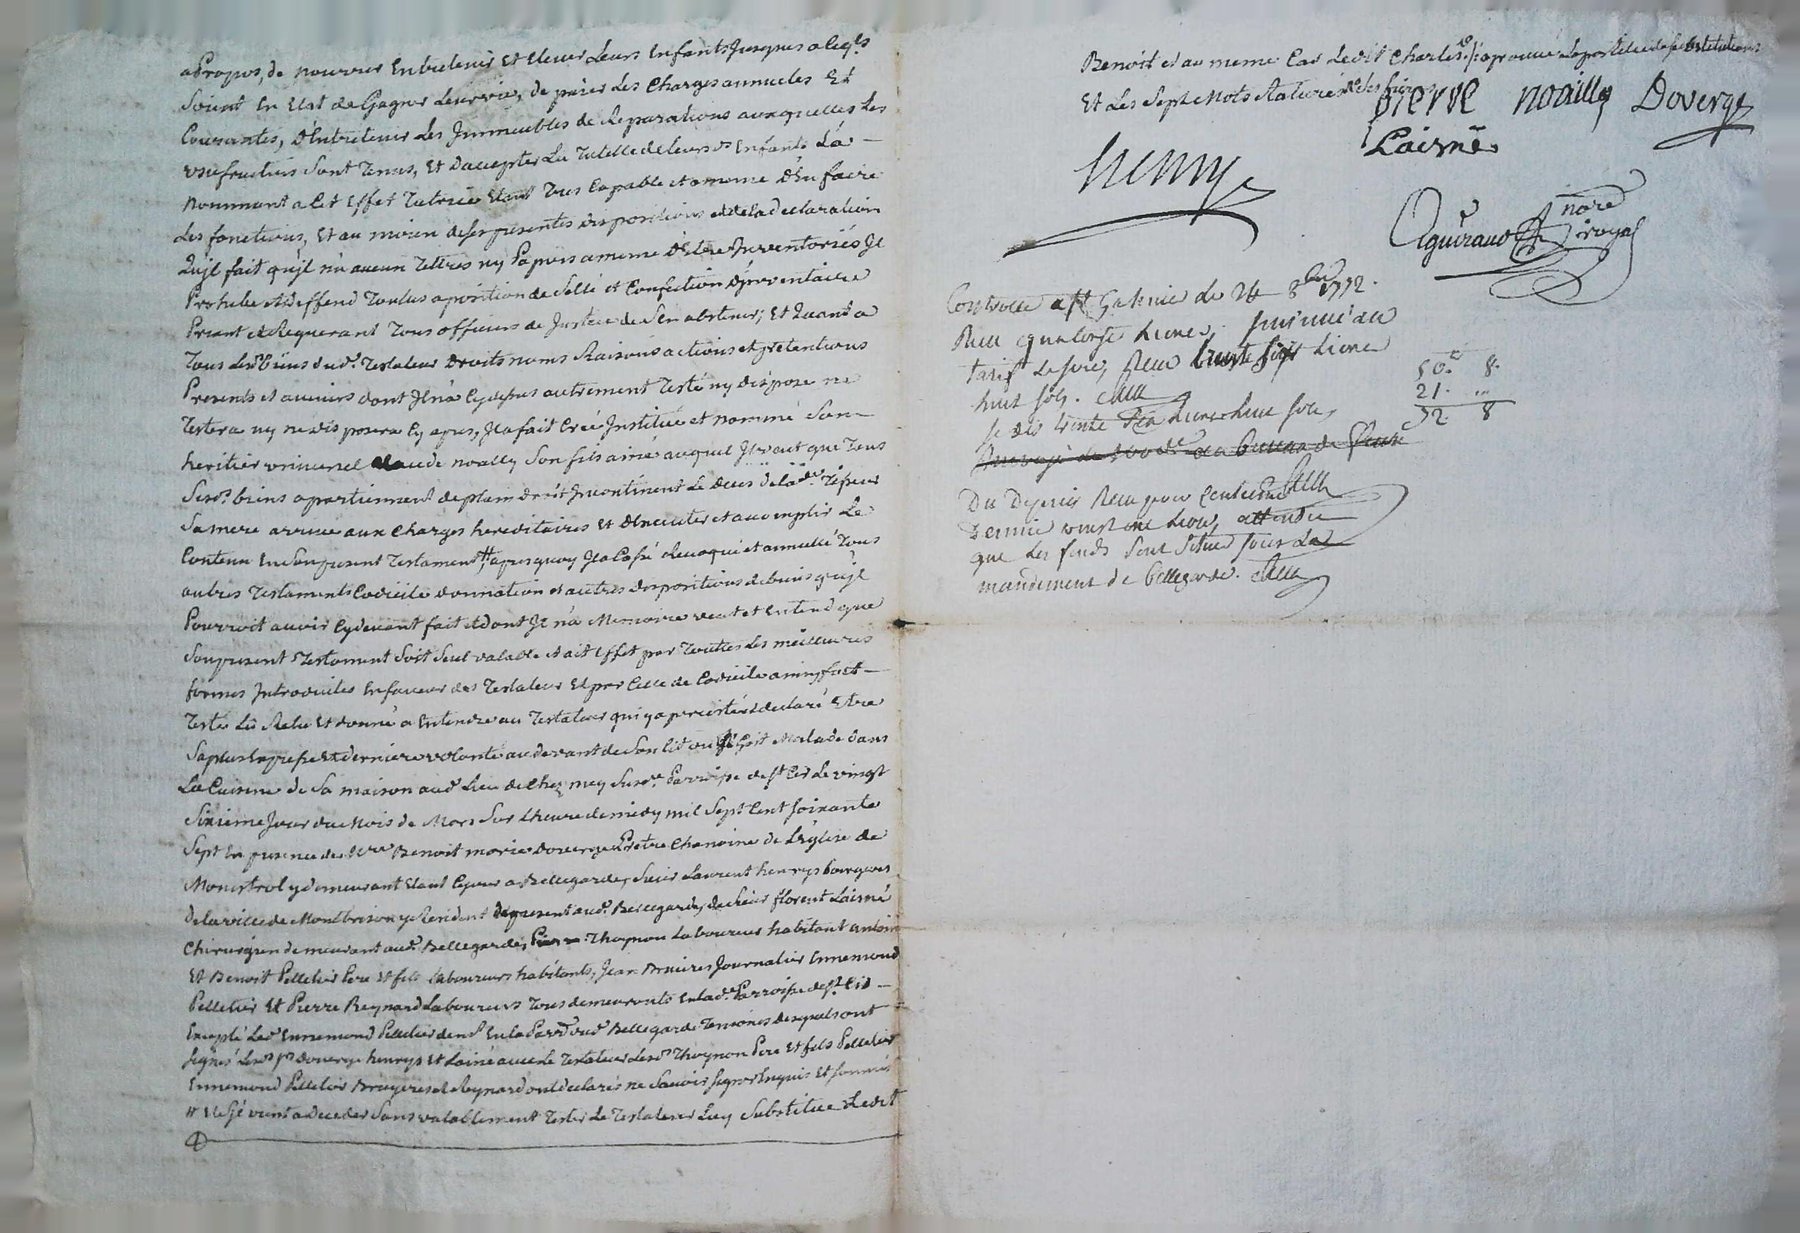 apropos, de nourrir Entretenir Et Elever Leurs Enfants Jusques a ceq.ls
Soient En Etat de Gagner Leur vie, de païer Les Charges annueles Et
Courantes, d'Entretenir Les Jmmeubles de Reparations auxquelles Les
usufruitiers Sont Tenus, Et D'accepter La Tutelle de leurs.ds Enfants La
nommant a Cet Effet Tutrice Etant Tres Capable et a meme d'En faire
Les fonctions, Et au moien de Ses presentes dispositions et de la declaration
Qu'jl fait qu'jl n'a aucun Tittres ny Papiers a meme d'Etre Jnventoriés Jl
Prohibe et deffend Toutes aposition de Sellé et Confection d'jnventaire
Priant et Requerant Tous officiers de Justice de S'En abstenir; Et Quant a
Tous Les biens dud. Testateur Droits noms Raisons actions et pretentions
Presents et avenirs dont Jl n'a Cydessus autrement Testé ny disposé ne
Testera ny ne disposera Cy apres, Jl a fait Créé Jnstitué et nommé Son
heritier universel Claude noailly Son fils ainé auquel Jl veut que Tous
Sesd. biens apartiennent de plain droit Jncontinent Le deces de lad.
Sa mere arrivé aux Charges hereditaires Et d'Executer et accomplir Le
Contenu En Son present Testament # apres quoy Jl a Cassé Revoqué et annullé Tous
autres Testaments Codicile donnation et autres dispositions de biens qu'jl
Pourroit avoir Cydevant fait et dont Jl n'a Memoire veut et Entend que
Son present Testament Soit Seul valable et ait Effet par Toutes Les meilleures
formes Jntroduites En faveur des Testateurs Et par Celle de Codicile ainsy fait
Testé Lû Relu Et donné a Entendre au Testateur qui y a percisté et declaré Etre
Sa plus Expresse et derniere volonté au devant de Son lit ou Jl Git Malade dans
La Cuisine de Sa maison aud. Lieu de Chez mey Susd. Parroisse de St Cir Le vingt
Sixieme Jour du Mois de Mars Sur L'heure de midy mil Sept Cent Soixante
Sept En presence de Benoit marie doverge Prêtre Chanoine de L'Eglise de
Monistrol y demeurant Etant Cejour a Bellegarde, Sieur Laurent henrys bourgeois
de la ville de Montbrison y Resident de present aud. Bellegarde, de Sieur florent Laisné
Chirurgien demeurant aud. Bellegarde, Thoynon Laboureur habitant antoine
Et Benoit Pelletier Pere et fils Laboureurs habitants, Jean Bruieres Journalier Ennemond
Pelletier Et Pierre Reynard Laboureurs Tous demeurants En lad. Parroisse de St Cir
Excepté Led. Ennemond Pelletier En la Parr.e dud. Bellegarde Temoins desquels ont
Signés Lesd. Srs doverge henrys Et Lainé avec Le Testateur Lesd. Thoynon Pere Et fils Pelletier
Ennemond Pelletier Bruyeres et Reynard ont declarés ne Savoir Signer Enquis Et Sommés
# Et S'jl vient a deceder Sans valablement Tester Le Testateur Luy Substitue Ledit
Benoit et au meme Cas Ledit Charles aprouvé L'apostille de Substitutions
Et Les Sept Mots
pierre noailly Doverge
Laisné
henrys
Aguiraud nore
royal
Controllé a St Galmier le 24 8bre 1772.
Reçu quatorze Livres, Jnsinué au
Tarif Reçu trente Sept Livres
huit Sols.
Je dis trente Livres huit Sols,
50. 8.
21. ...
72. 8
Du Depuis Reçu pour Centieme
Denier vingt une Livres, attendu
que Les fonds Sont Situés Sous Le
mandement de Bellegarde.